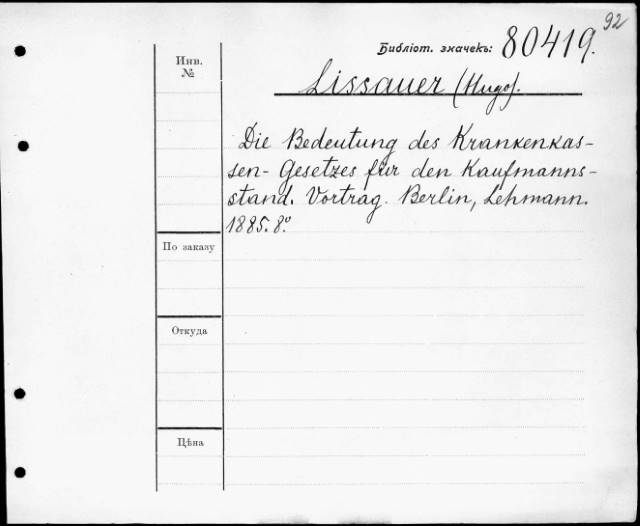 92
Библіот. значекъ: 80419.
Инв.
№
Lissauer (Hugo).
Die Bedeutung des Krankenkas-
sen-Gesetzes für den Kaufmanns-
stand. Vortrag. Berlin, Lehmann.
1885. 8.º
По заказу
Откуда
Цѣна